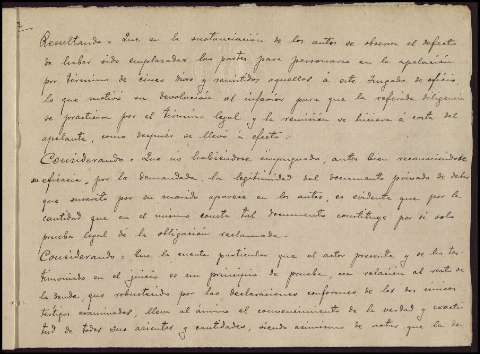 Resultando: Que en la sustanciación de los autos se observa el defecto
de haber sido emplazadas las partes para personarse en la apelación
por término de cinco días y remitidos aquellos á este Juzgado de oficio
lo que motivó su devolución al inferior para que la referida diligencia
se practicara por el término legal, y la remisión se hiciera á costa del
apelante, como después se llevó á efecto.
Considerando: Que no habiéndose impugnado, antes bien reconociéndose
su eficacia, por la demandada, la legitimidad del documento privado de deber
que suscrito por su marido aparece en los autos, es evidente que por la
cantidad que en el mismo consta tal documento constituye por si solo
prueba legal de la obligación reclamada.
Considerando: Que la cuenta particular que el actor presenta y se ha tes-
timoniado en el juicio es un principio de prueba, con relación al resto de
la deuda, que robustecido por las declaraciones conformes de los dos únicos
testigos examinados, lleva al ánimo el convencimiento de la verdad y exacti-
tud de todos sus asientos y cantidades, siendo asimismo de notar que la de-